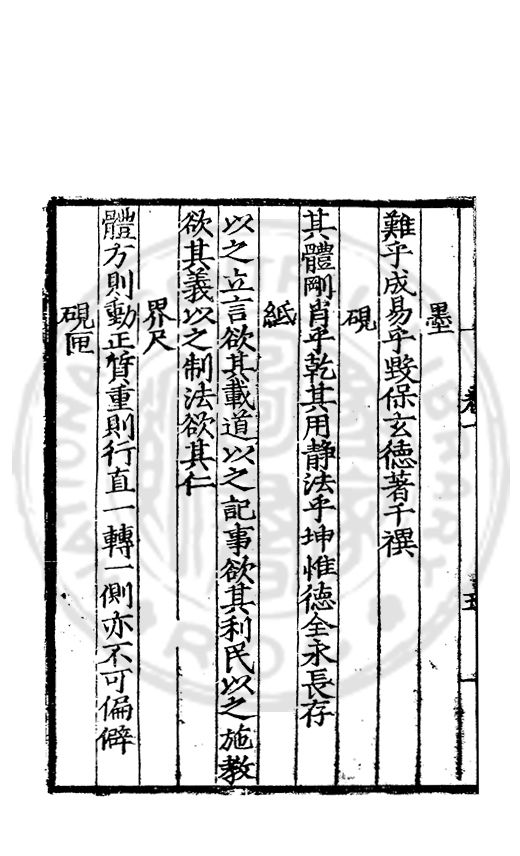 墨
難乎成易乎毀保玄德著千禩
硯
其體剛肖乎乾其用静法乎坤惟德全永長存
紙
以之立言欲其載道以之記事欲其利民以之施教
欲其義以之制法欲其仁
界尺
體方則動正質重則行直一轉一側亦不可偏僻
硯匣